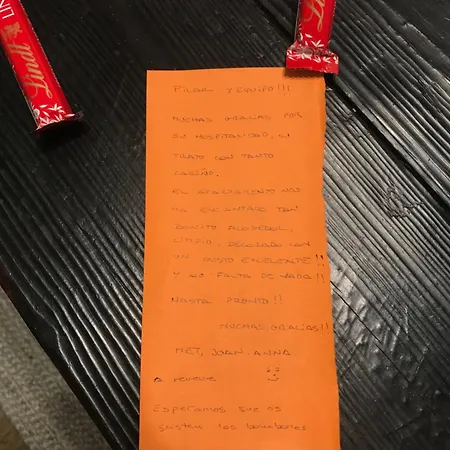 Lindt
LIN
Lindt
PILAR Y EQUIPO!!!
MUCHAS GRACIAS POR
SU HOSPITALIDAD, SU
TRATO CON TANTO
CARIÑO.
EL APARTAMENTO NOS
HA ENCANTADO TAN
BONITO ACOGEDOR,
LIMPIO, DECORADO CON
UN GUSTO EXCELENTE!!
Y NO FALTA DE NADA!!
HASTA PRONTO!!
MUCHAS GRACIAS!!!
MET, JOAN. ANNA
Esperamos que os
gusten los bombones